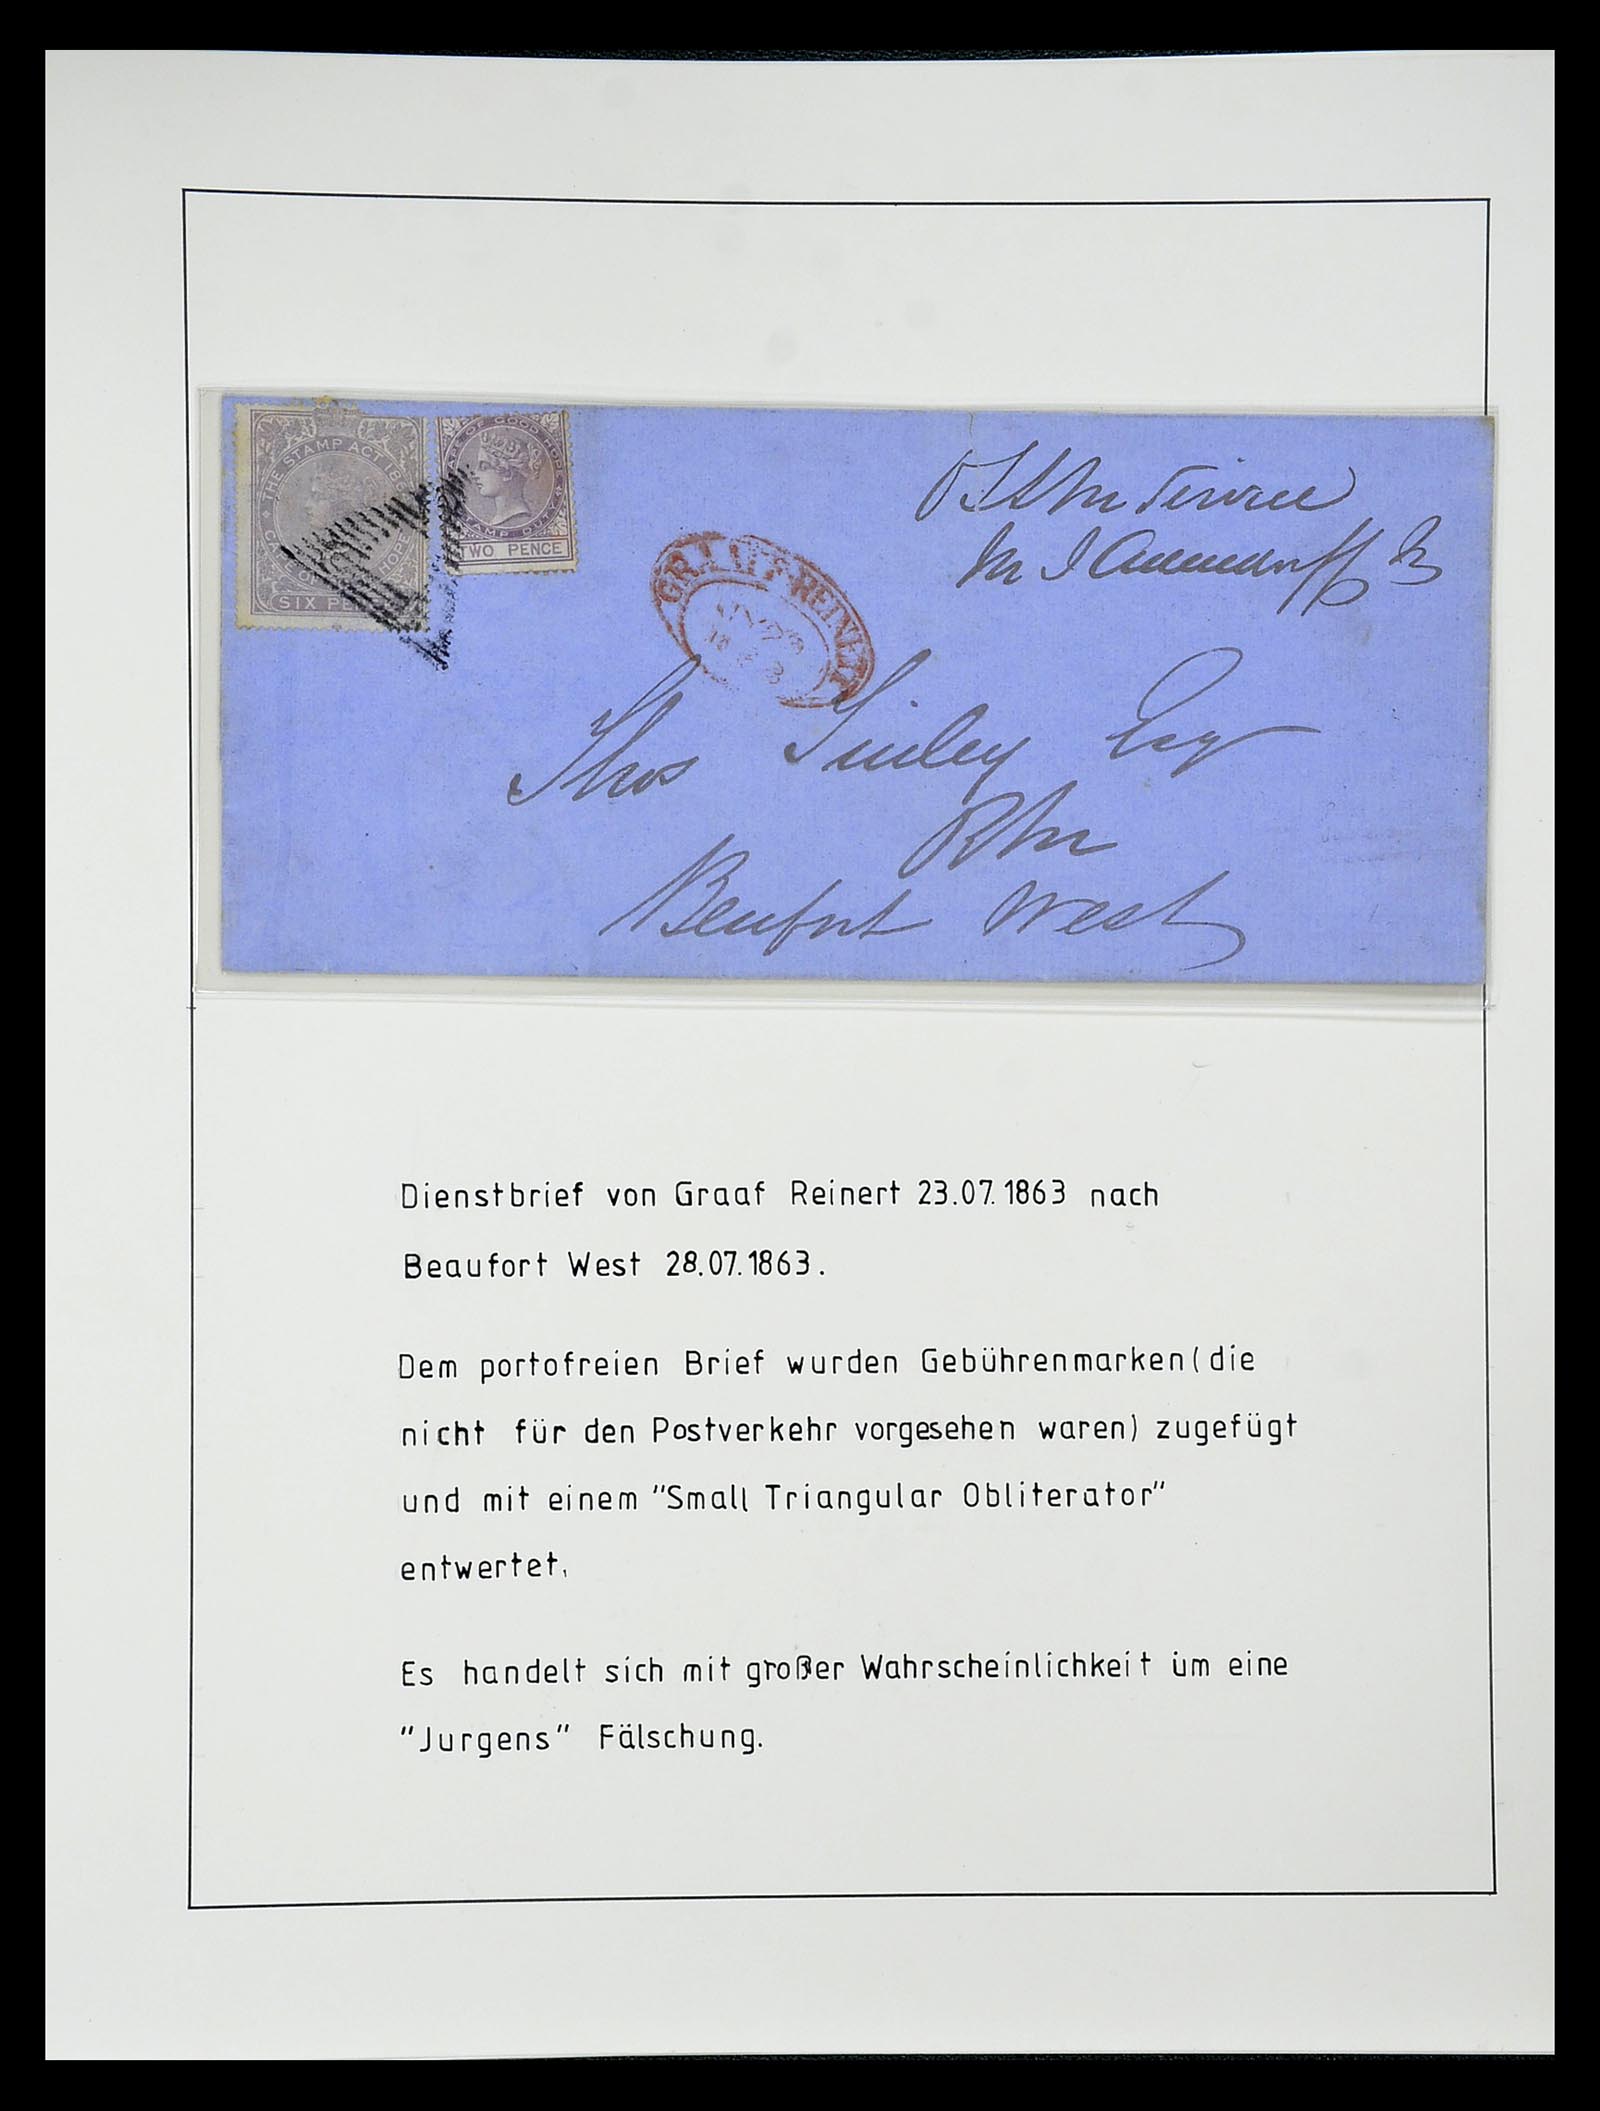 THE STAMP ACT 186
CA OF HOPE
SIX PE
APE OF GOOD HOPE
STAMP DUTY
TWO PENCE
GRAAFF-REINET
Thos Esq
Beaufort West
Dienstbrief von Graaf Reinert 23.07.1863 nach
Beaufort West 28.07.1863.
Dem portofreien Brief wurden Gebührenmarken (die
nicht für den Postverkehr vorgesehen waren) zugefügt
und mit einem "Small Triangular Obliterator"
entwertet.
Es handelt sich mit großer Wahrscheinlichkeit um eine
"Jurgens" Fälschung.